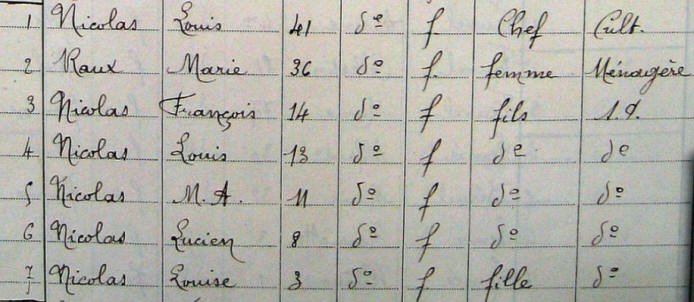 1 Nicolas Louis 41 do f Chef Cult.
2 Raux Marie 36 do f. femme Ménagère
3 Nicolas François 14 do f fils
4 Nicolas Louis 13 do f do do
5 Nicolas M. A. 11 do f do do
6 Nicolas Lucien 8 do f do do
7 Nicolas Louise 3 do f fille do